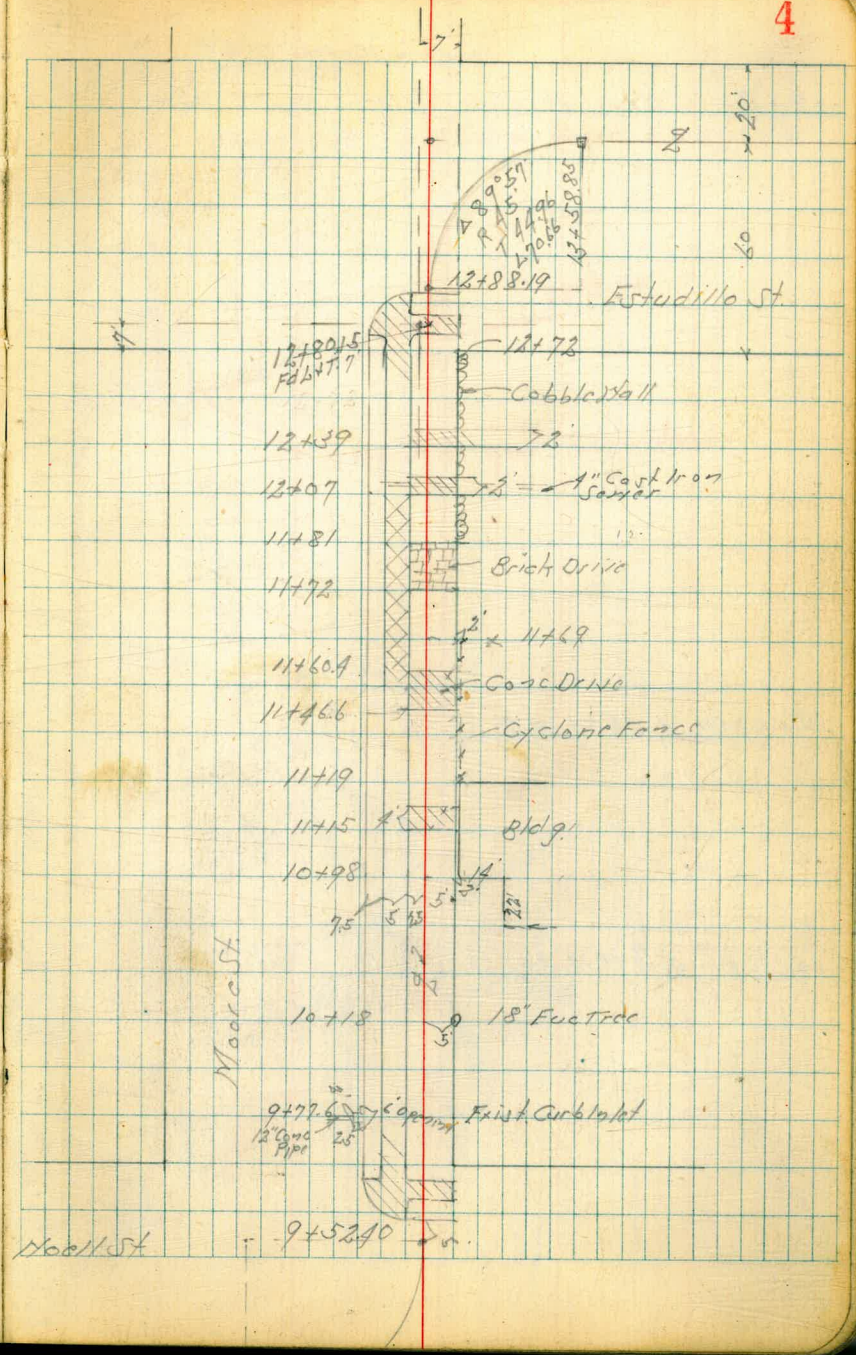 4
7'
20'
60
Δ 89°57'
R 45'
T 44.96
Δ 70.66
13+58.85
12+88.19
Estudillo St.
7'
12+80.15
Fd L+T.7
12+72
Cobble Wall
12+39
2'
12+07
2'
4" Cast Iron
11+81
Brick Drive
11+72
2'
11+69
11+60.4
Conc Drive
11+46.6
Cyclone Fence
11+19
11+15
4'
Bldg.
10+98
14'
2'
5'
7.5
5
22'
Moore St.
10+18
5'
18" Euc Tree
9+77.6
6' Opening
Exist. Curb Inlet
12" Conc
Pipe
25
9+52.40
5'
Noell St.